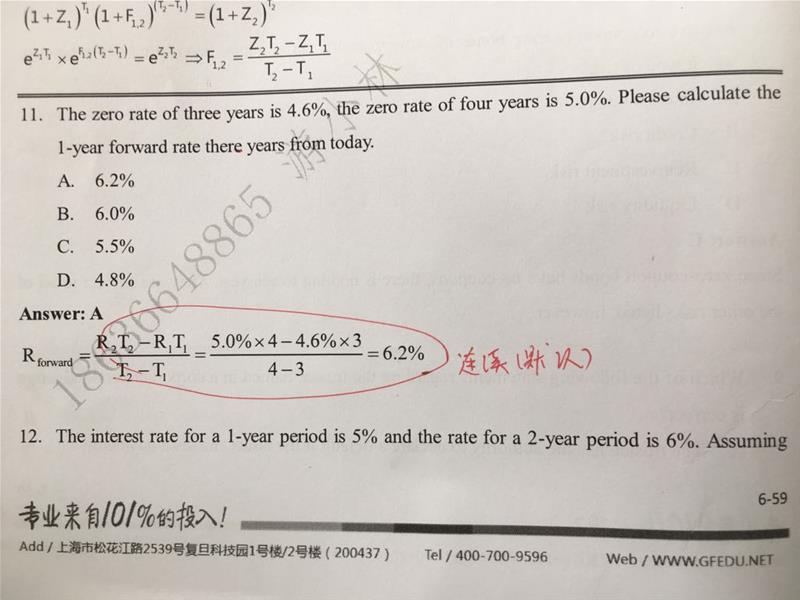 (1+Z₁)^T₁ (1+F₁,₂)^(T₂−T₁) = (1+Z₂)^T₂
e^Z₁T₁ × e^F₁,₂(T₂−T₁) = e^Z₂T₂ ⇒ F₁,₂ = (Z₂T₂ − Z₁T₁) / (T₂ − T₁)
11. The zero rate of three years is 4.6%, the zero rate of four years is 5.0%. Please calculate the
1-year forward rate there years from today.
A. 6.2%
B. 6.0%
C. 5.5%
D. 4.8%
Answer: A
R forward = (R₂T₂ − R₁T₁) / (T₂ − T₁) = (5.0%×4 − 4.6%×3) / (4−3) = 6.2% 连续(默认)
12. The interest rate for a 1-year period is 5% and the rate for a 2-year period is 6%. Assuming
6-59
专业来自101%的投入!
Add / 上海市松花江路2539号复旦科技园1号楼/2号楼(200437) Tel / 400-700-9596 Web / WWW.GFEDU.NET
18636648865 游小林